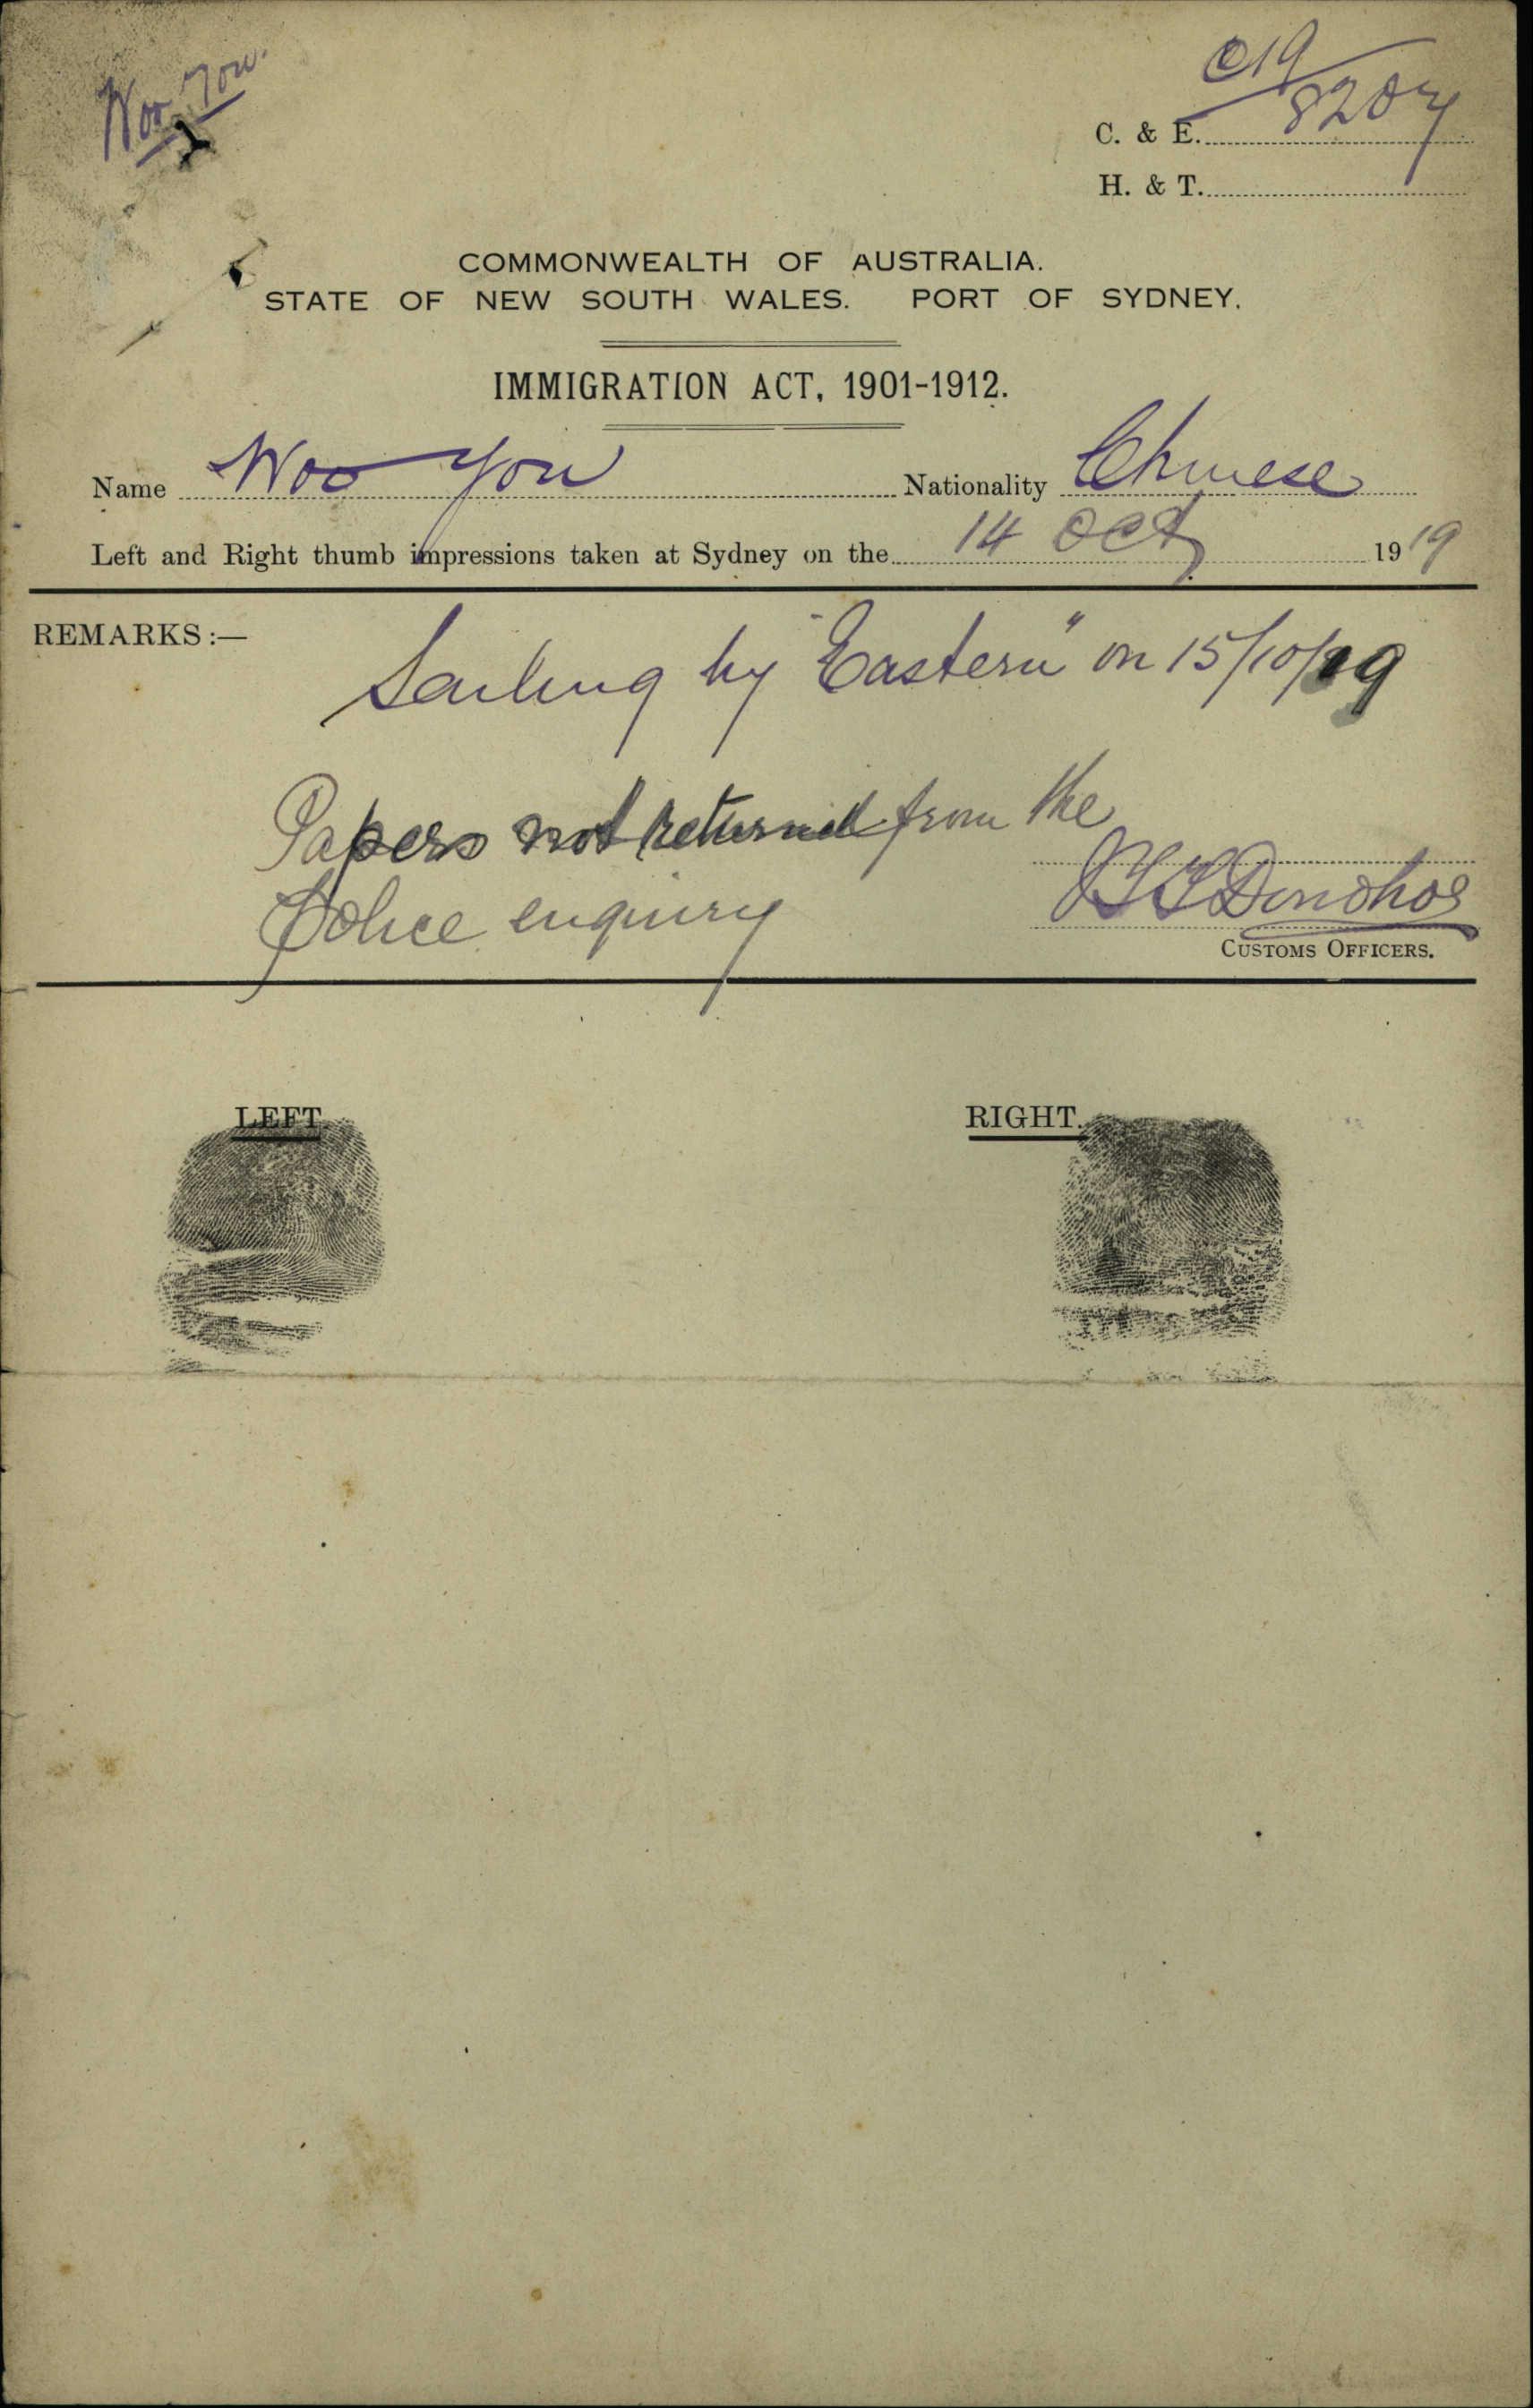 Woo You.
C19
8207
C. & E.
H. & T.
COMMONWEALTH OF AUSTRALIA.
STATE OF NEW SOUTH WALES. PORT OF SYDNEY.
IMMIGRATION ACT, 1901-1912.
Name Woo You Nationality Chinese
Left and Right thumb impressions taken at Sydney on the 14 Oct 1919
REMARKS :—
Sailing by "Eastern" on 15/10/19
Papers not returned from the
Police enquiry
Donohoe
CUSTOMS OFFICERS.
LEFT.
RIGHT.